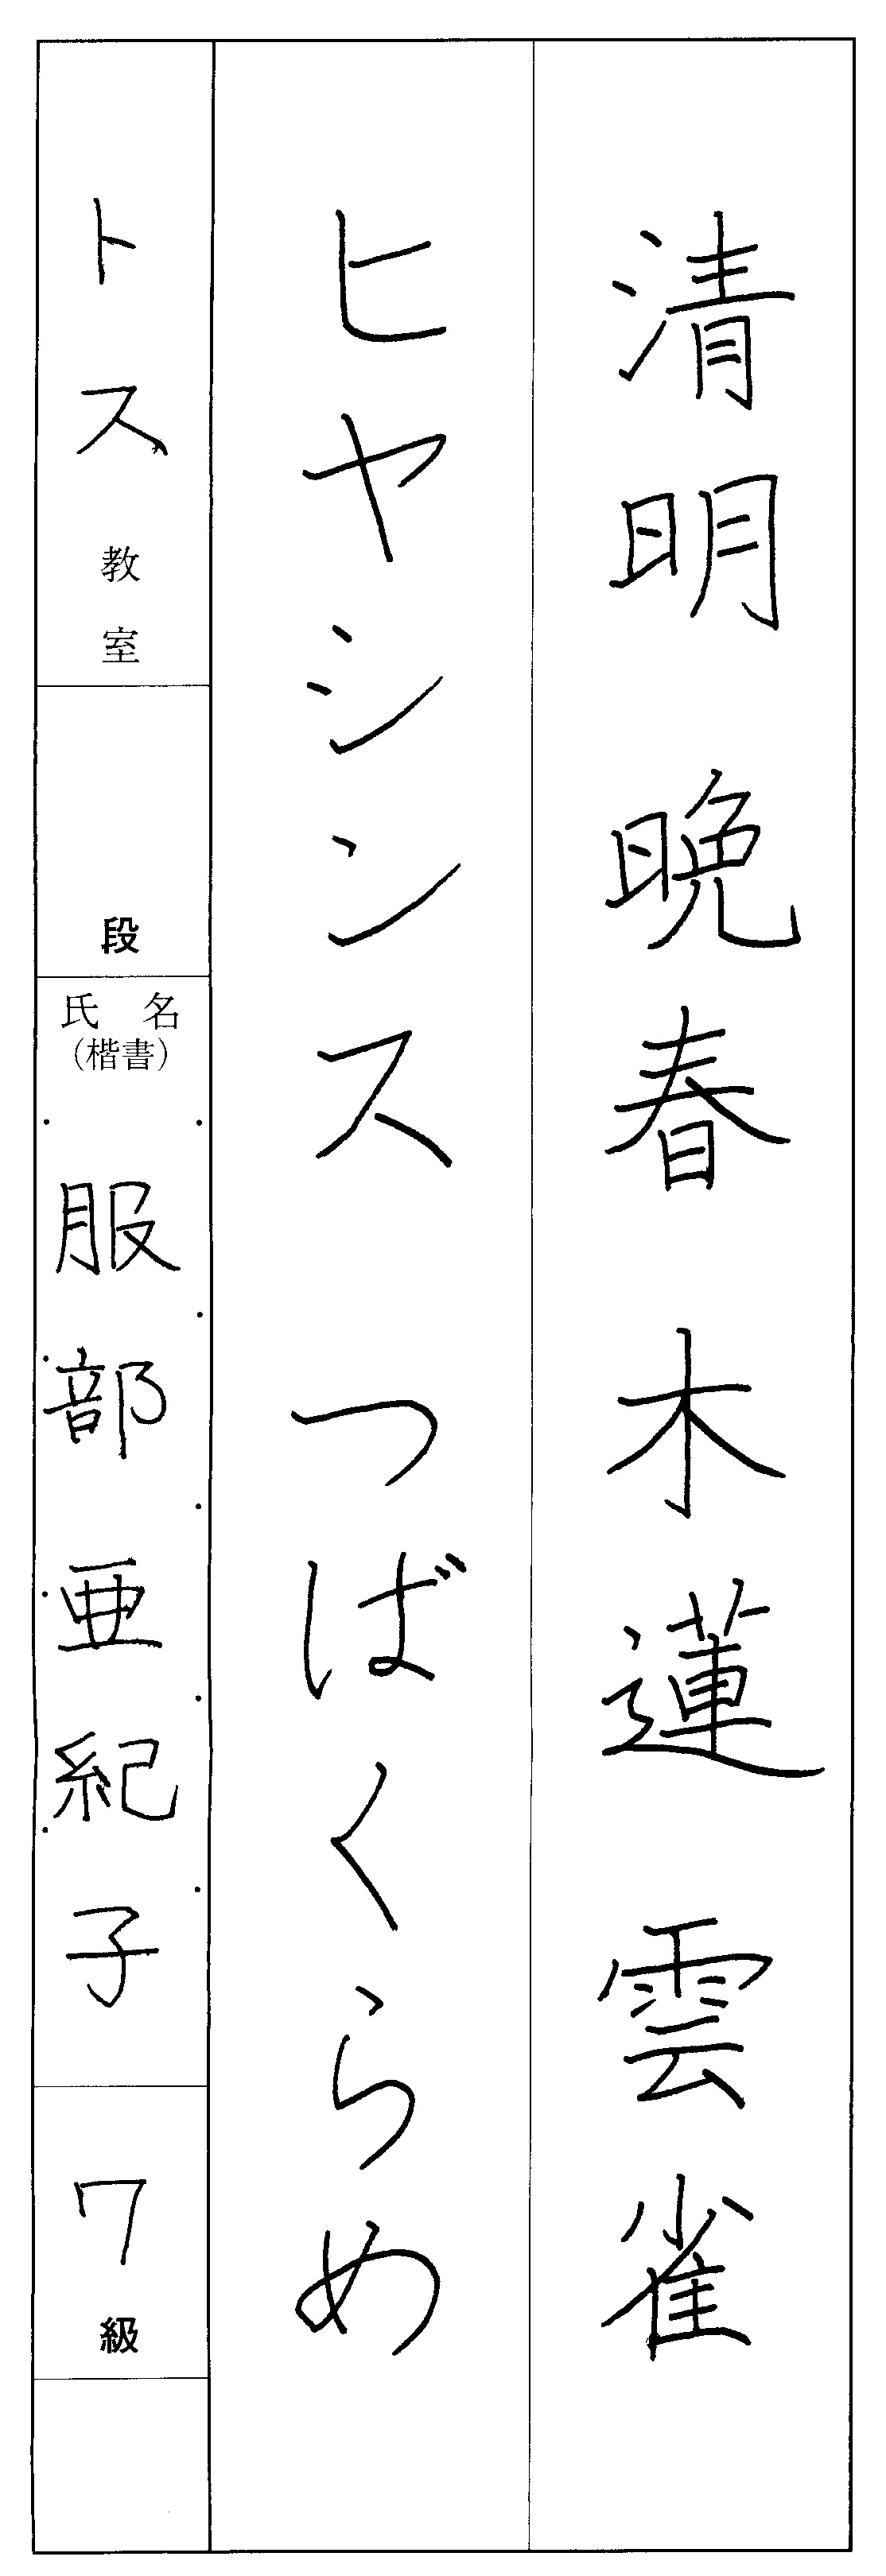 清明 晩春 木蓮 雲雀
ヒヤシンス つばくらめ
トス教室
段
氏名
(楷書)
服部亜紀子
7級